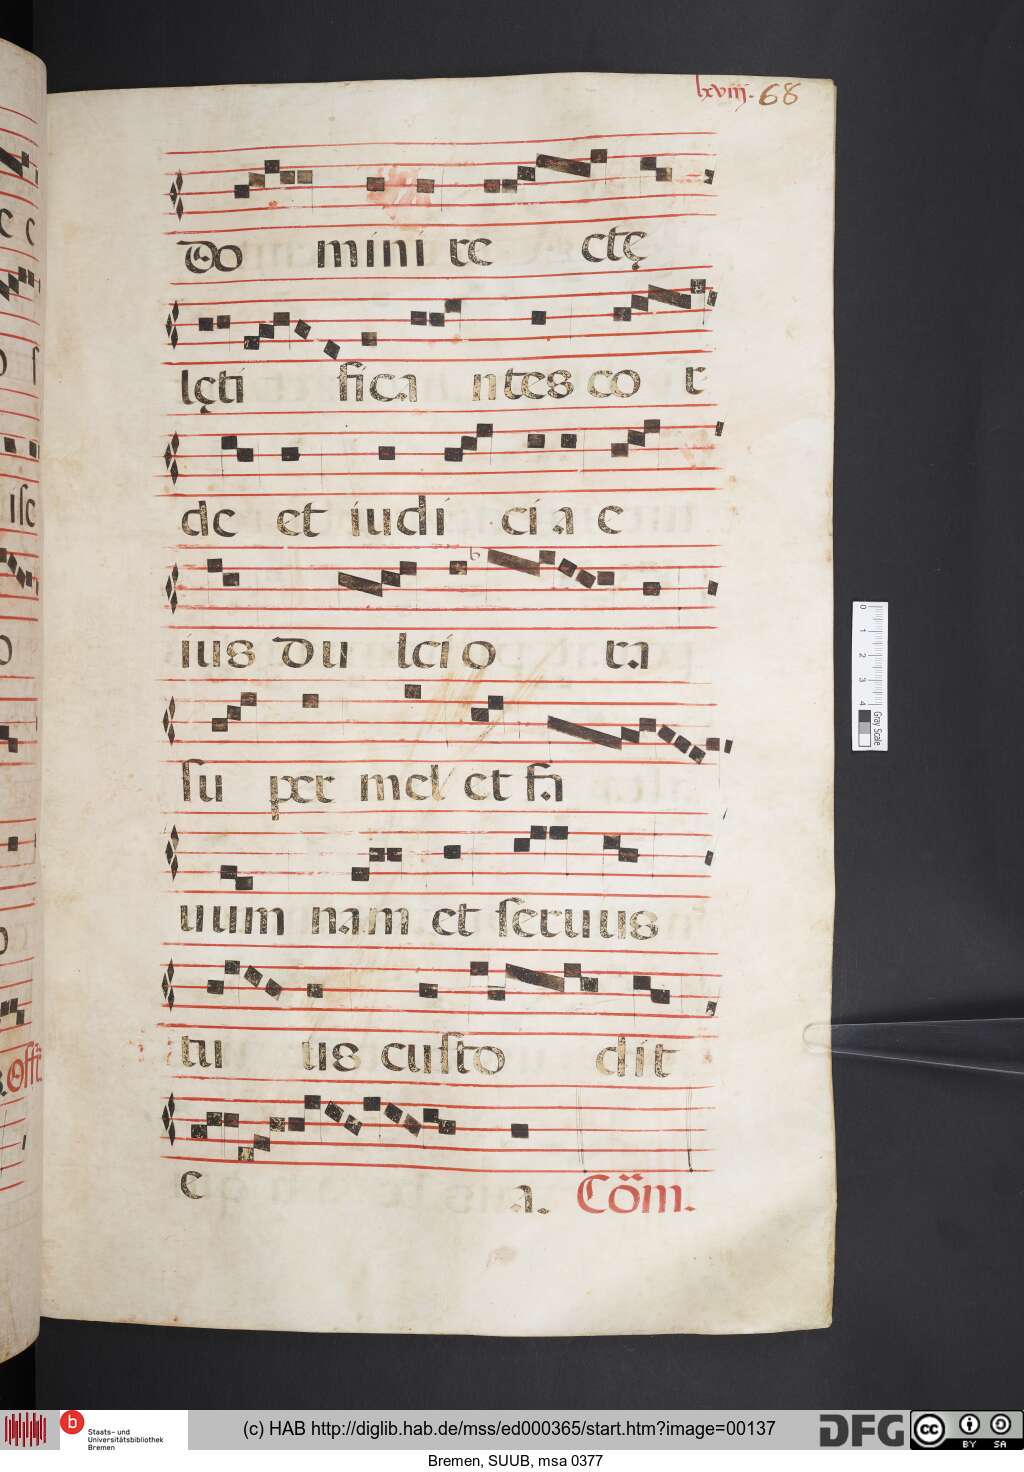 lxviij. 68
Do mini re ctę
lęti fica ntes co r
de et iudi ci a e
ius du lcio ra
su per mel et fa
uum nam et seruus
tu us custo dit
e a. Cöm.
c c
o s
isc
o
o
. Offz
0 1 2 3 4 Gray Scale
b Staats- und Universitätsbibliothek Bremen
(c) HAB http://diglib.hab.de/mss/ed000365/start.htm?image=00137
DFG
cc BY SA
Bremen, SUUB, msa 0377